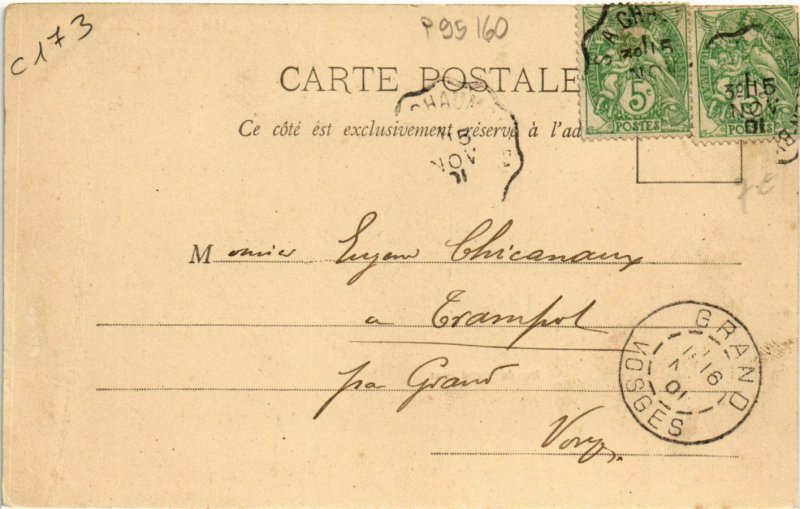 C173
P95160
CARTE POSTALE
Ce côté est exclusivement réservé à l'ad
5c
POSTES
POSTES
15
NOV
01
15
NOV
01
Monsieur Eugene Chicanaux
a Trampot
par Grand
Vosges
GRAND
16
01
VOSGES
7€